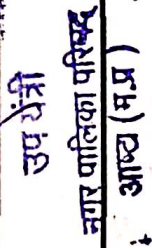 उप यंत्री
नगर पालिका परिषद
आष्टा (म.प्र)